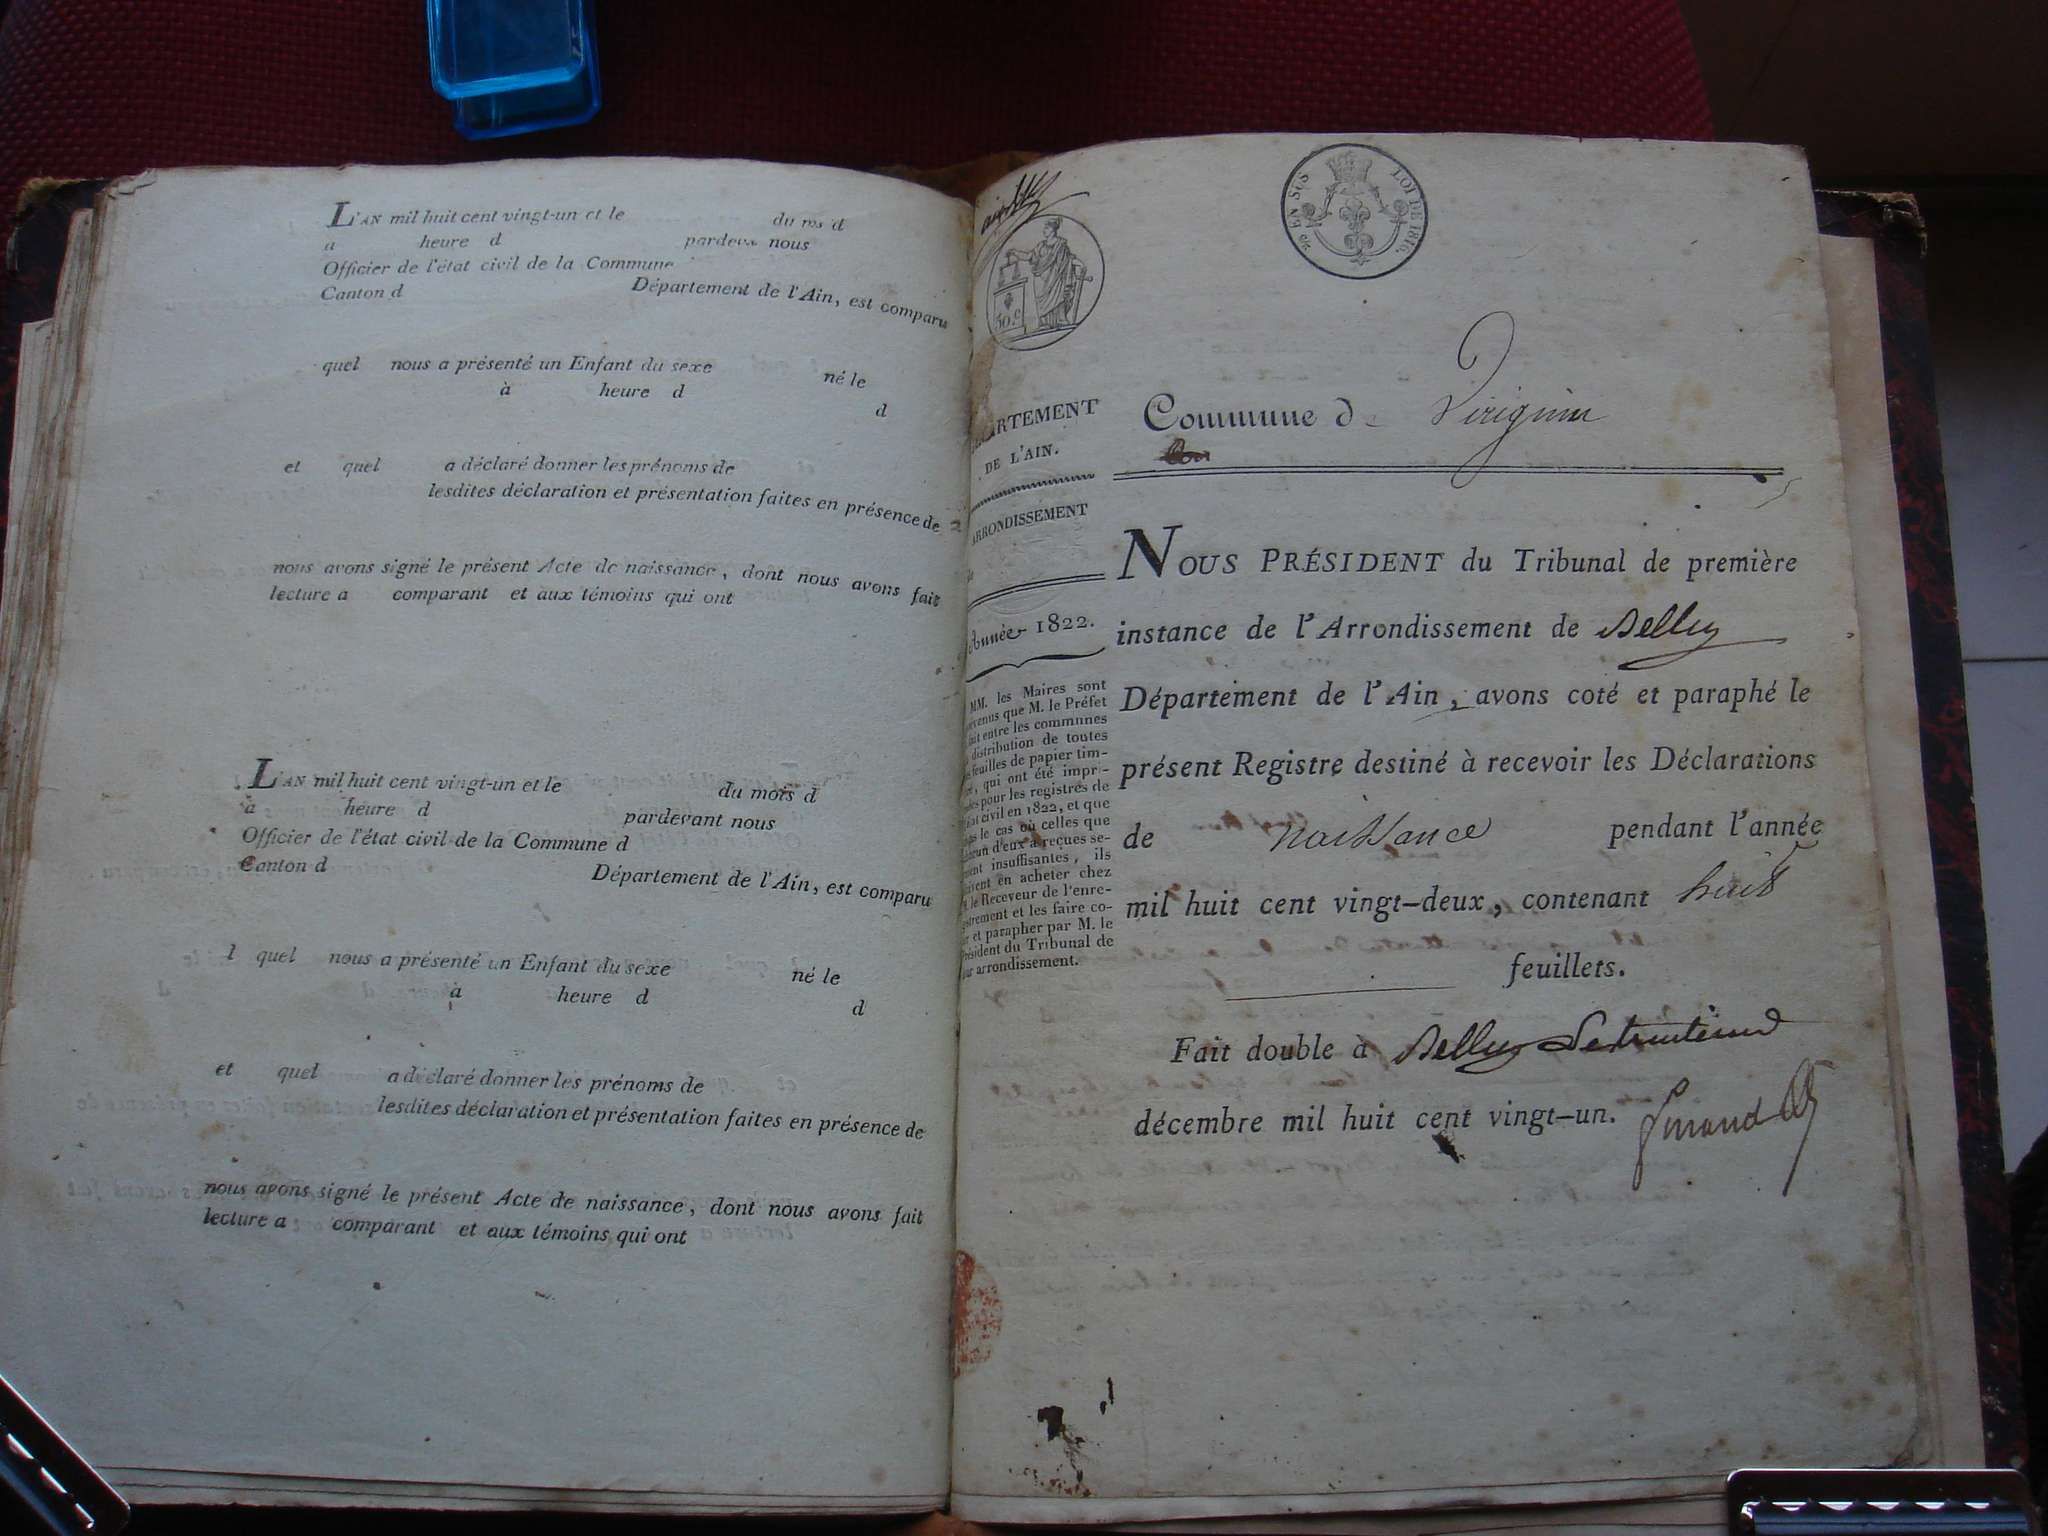 L'AN mil huit cent vingt-un et le du ms d
a heure d pardeva nous
Officier de l'état civil de la Commune
Canton d Département de l'Ain, est comparu
quel nous a présenté un Enfant du sexe né le
à heure d
d
et quel a déclaré donner les prénoms de
lesdites déclaration et présentation faites en présence de
nous avons signé le présent Acte de naissance, dont nous avons fait
lecture a comparant et aux témoins qui ont
L'AN mil huit cent vingt-un et le du mois d
a heure d pardevant nous
Officier de l'état civil de la Commune d
Canton d Département de l'Ain, est comparu
l quel nous a présenté un Enfant du sexe né le
à heure d
d
et quel a déclaré donner les prénoms de
lesdites déclaration et présentation faites en présence de
nous avons signé le présent Acte de naissance, dont nous avons fait
lecture a comparant et aux témoins qui ont
50.c
EN SUS LOI DE 1816.
ARTEMENT
DE L'AIN.
ARRONDISSEMENT
Année 1822.
MM. les Maires sont
venus que M. le Préfet
fait entre les communes
distribution de toutes
feuilles de papier tim-
, qui ont été impri-
pour les registres de
civil en 1822, et que
le cas où celles que
cun d'eux a reçues se-
insuffisantes, ils
en acheter chez
le Receveur de l'enre-
istrement et les faire co-
et parapher par M. le
Président du Tribunal de
arrondissement.
Commune de Virignin
NOUS PRÉSIDENT du Tribunal de première
instance de l'Arrondissement de Belley
Département de l'Ain, avons coté et paraphé le
présent Registre destiné à recevoir les Déclarations
de naissance pendant l'année
mil huit cent vingt-deux, contenant huit
feuillets.
Fait double à Belley
décembre mil huit cent vingt-un.